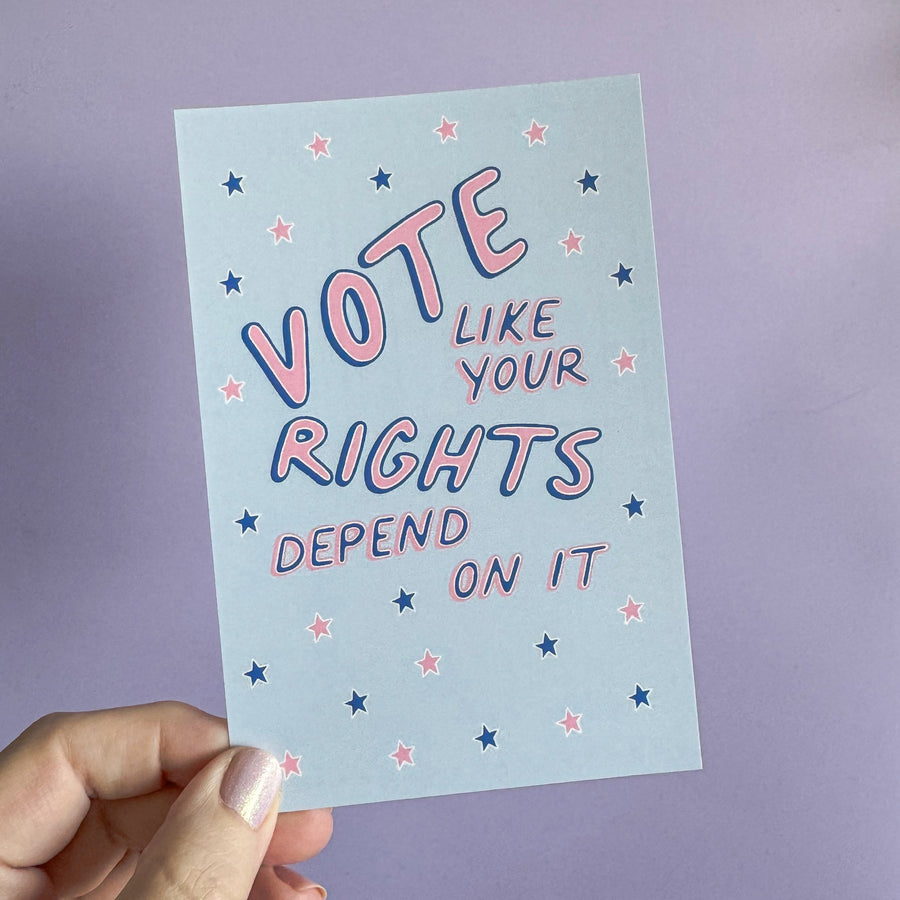 VOTE
LIKE
YOUR
RIGHTS
DEPEND
ON IT